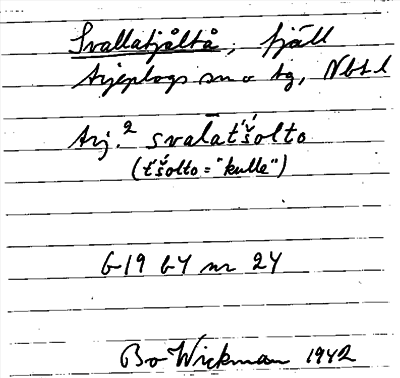 Svallatjåltå, fjäll
Arjeplogs sn o tg, Nbt l
Arj.² svalāt́š́olto
(t́š́olto = "kulle")
G 19 b4 nr 24
Bo Wickman 1942